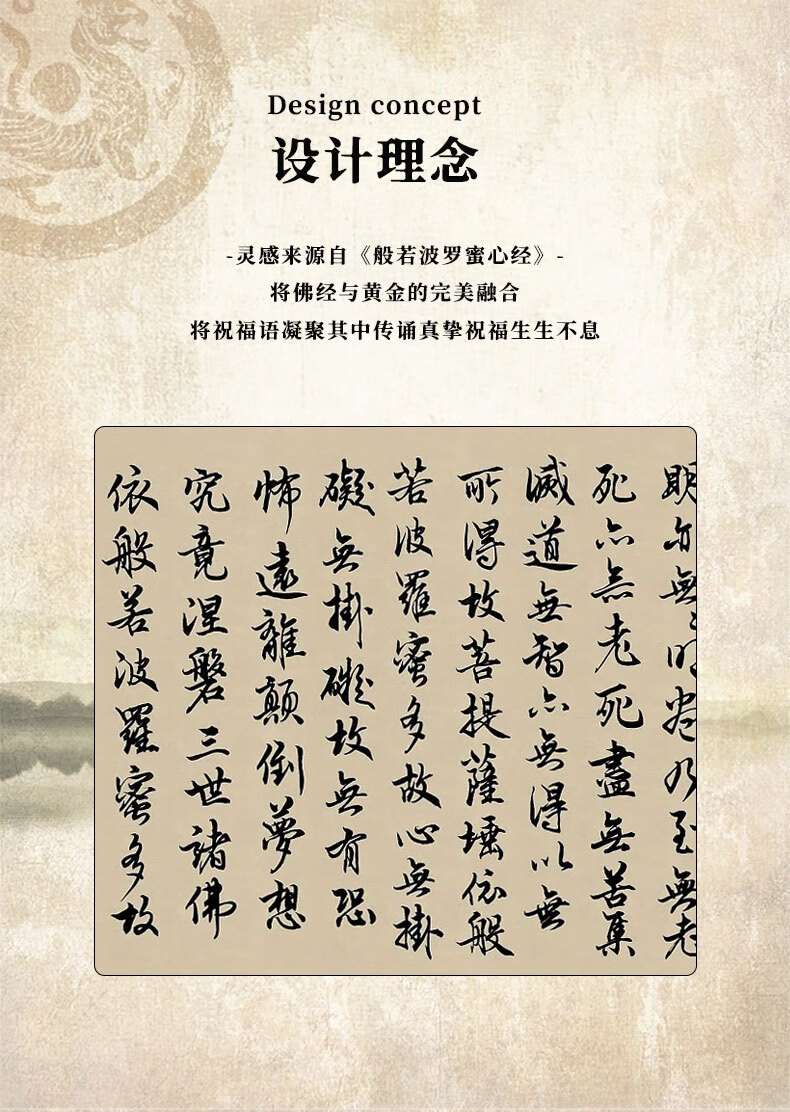 Design concept
设计理念
-灵感来源自《般若波罗蜜心经》-
将佛经与黄金的完美融合
将祝福语凝聚其中传诵真挚祝福生生不息
明亦無無明盡乃至無老
死亦無老死盡無苦集
滅道無智亦無得以無
所得故菩提薩埵依般
若波羅蜜多故心無掛
礙無掛礙故無有恐
怖遠離顛倒夢想
究竟涅槃三世諸佛
依般若波羅蜜多故